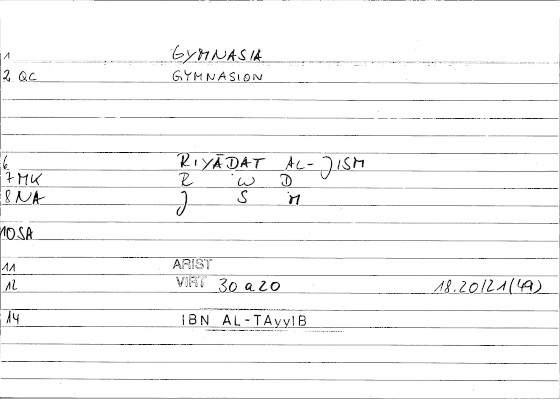 1 GYMNASIA
2 QC GYMNASION
6 RIYĀDAT AL-JISM
7 MK R W D
8 NA J S M
10 SA
11 ARIST
12 VIRT 30 a 20 18.20/21(49)
14 IBN AL-TAyyIB